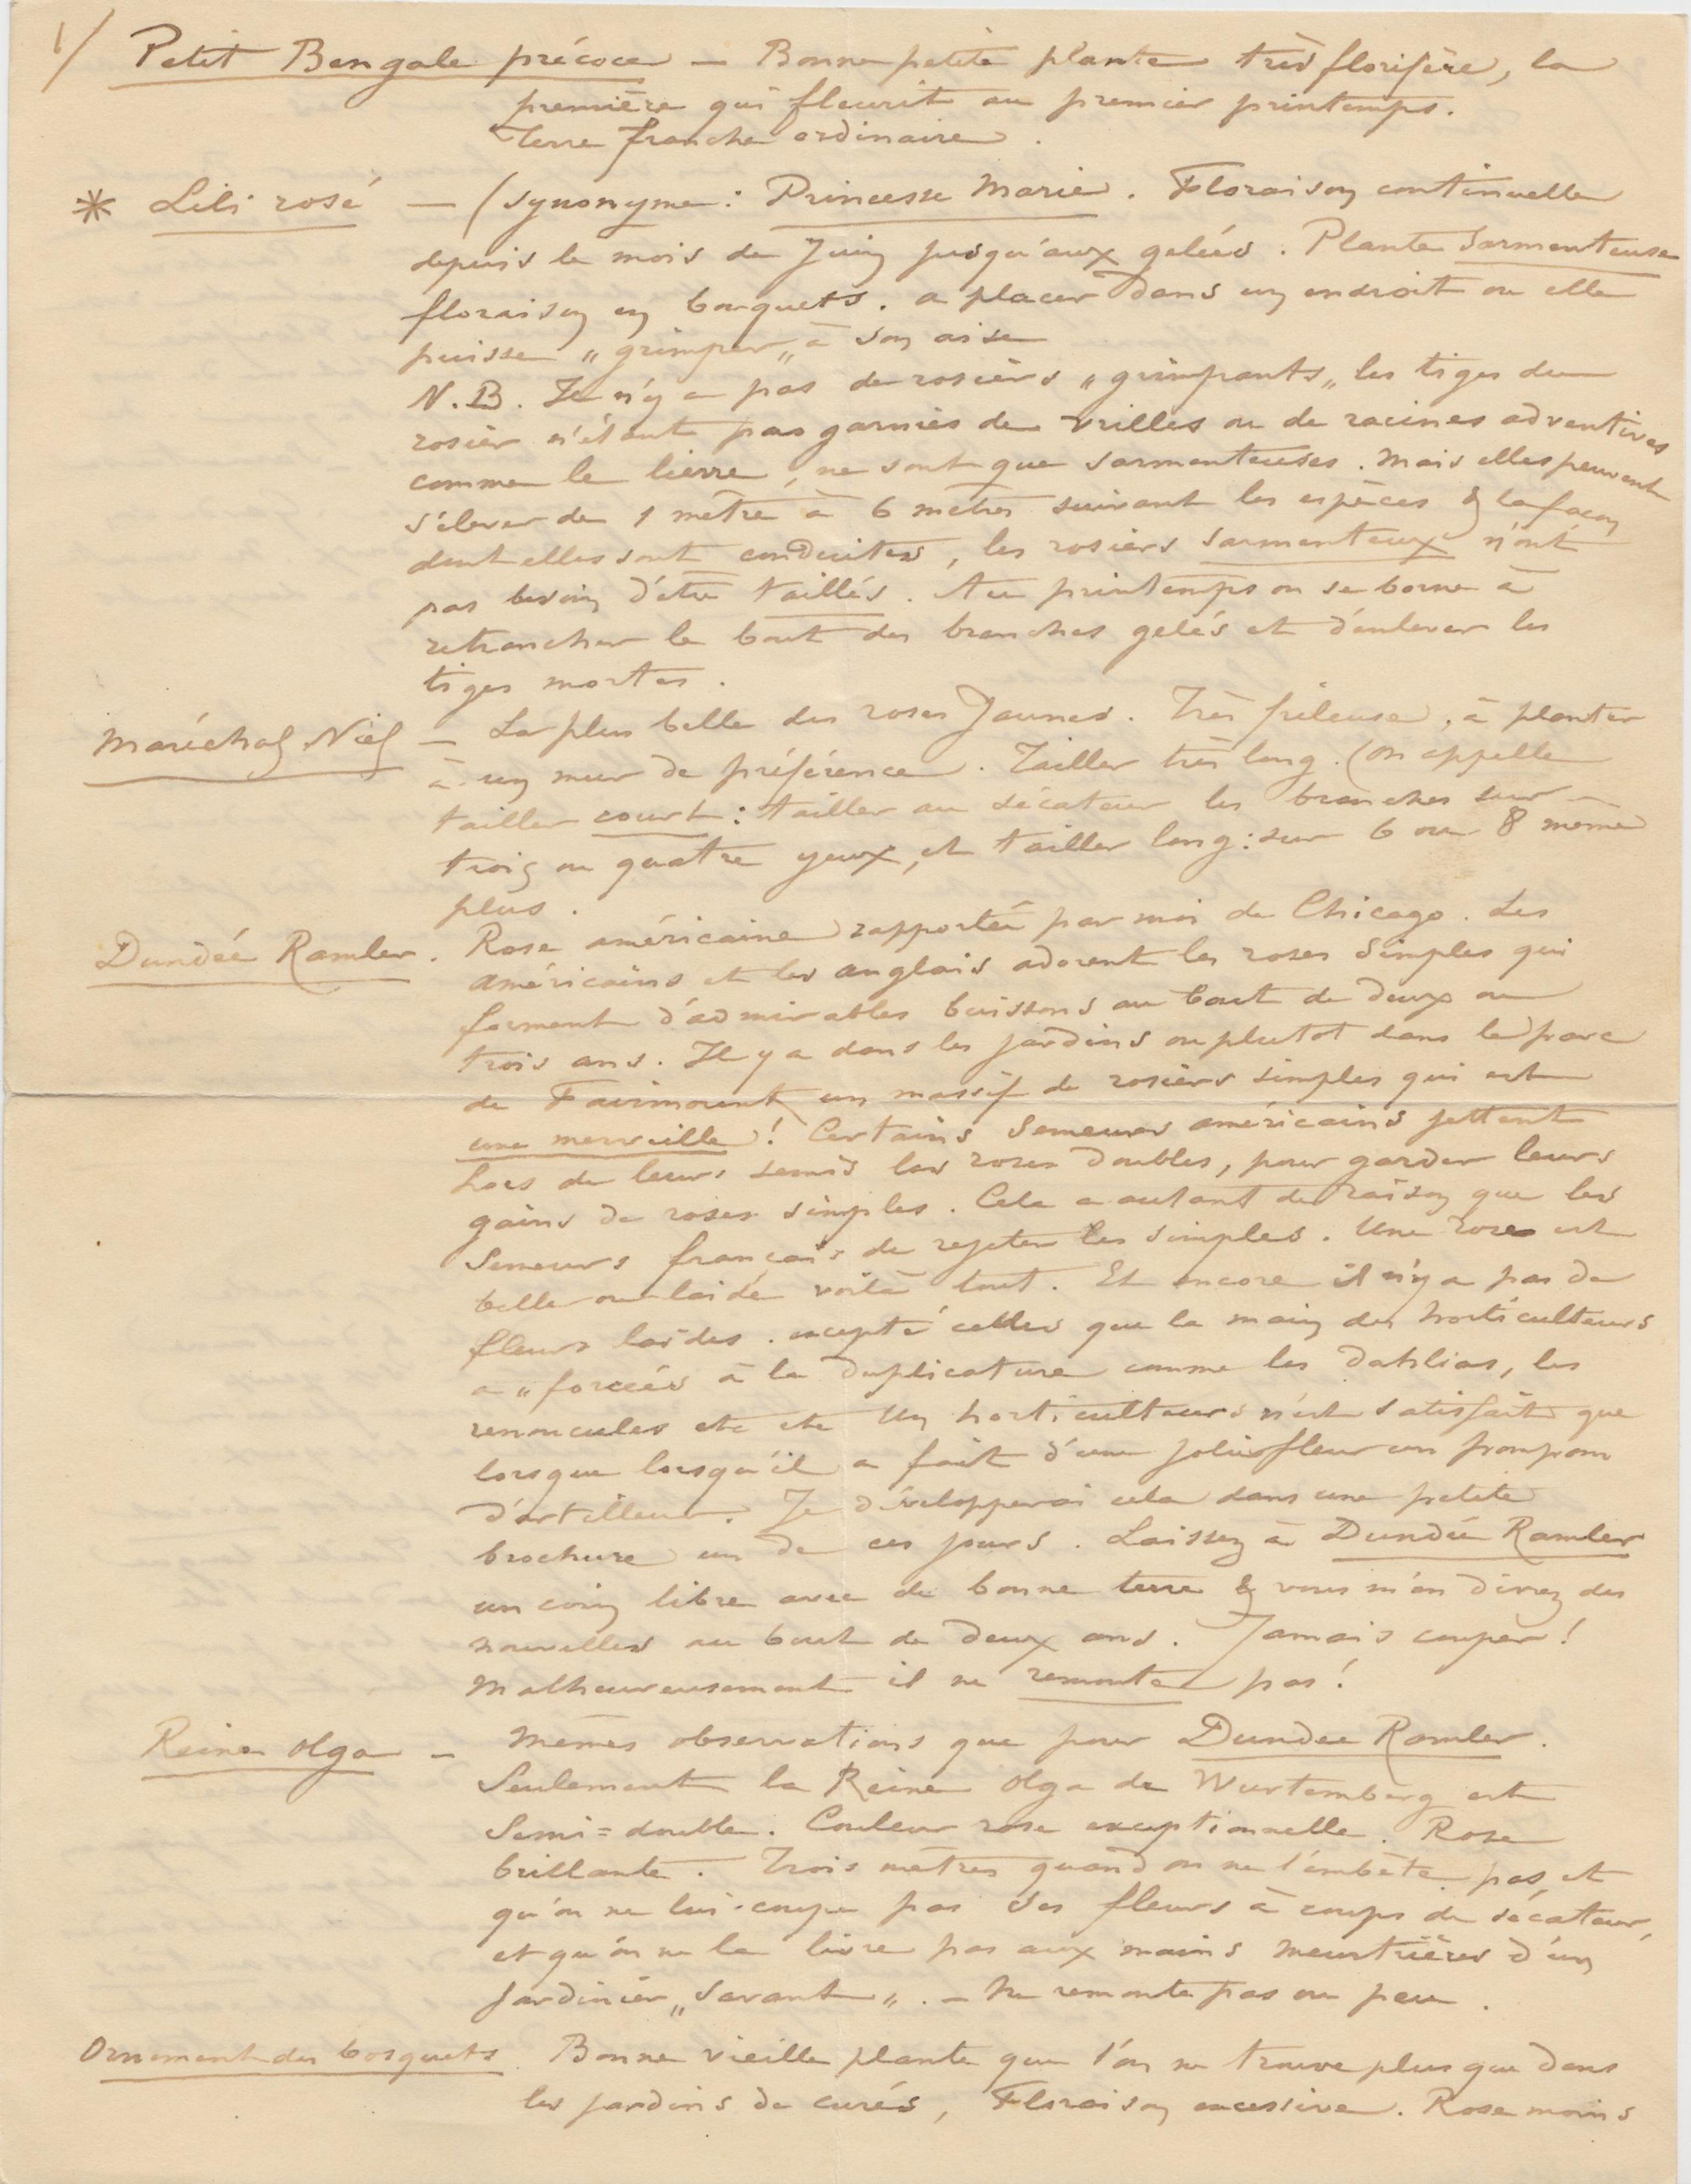 1/ Petit Bengale précoce — Bonne petite plante très florifère, la
première qui fleurit au premier printemps.
Terre franche ordinaire.
* Lili rosé — (synonyme: Princesse Marie. Floraison continuelle
depuis le mois de Juin jusqu'aux gelées. Plante sarmenteuse
floraison en bouquets. a placer dans un endroit ou elle
puisse „grimper„ à son aise
N.B. Il n'y a pas de rosiers „grimpants„ les tiges du
rosier n'étant pas garnies de vrilles ou de racines adventives
comme le lierre, ne sont que sarmenteuses. Mais elles peuvent
s'élever de 1 mètre à 6 mètres suivant les espèces & la façon
dont elles sont conduites, les rosiers sarmenteux n'ont
pas besoin d'être taillés. Au printemps on se borne à
retrancher le bout des branches gelés et d'enlever les
tiges mortes.
Maréchal Niel — La plus belle des roses Jaunes. Très frileuse, à planter
à un mur de préférence. Tailler très long. (On appelle
tailler court: tailler au sécateur les branches sur
trois ou quatre yeux, et tailler long: sur 6 ou 8 meme
plus.
Dundée Rambler. Rose américaine rapportée par moi de Chicago. Les
américains et les anglais adorent les roses simples qui
forment d'admirables buissons au bout de deux ou
trois ans. Il y a dans les jardins ou plutot dans le parc
de Fairmount un massif de rosiers simples qui est
une merveille! Certains semeurs américains jettent
hors de leurs semis les roses doubles, pour garder leurs
gains de roses simples. Cela a autant de raison que les
semeurs français de rejeter les simples. Une rose est
belle ou laide voilà tout. Et encore il n'y a pas de
fleurs laides. excepté celles que la main des horticulteurs
a „forcées à la duplicature comme les dahlias, les
renoncules etc etc Un horticulteurs n'est satisfait que
lorsque lorsqu'il a fait d'une jolie fleur un pompon
d'artilleur. Je développerai cela dans une petite
brochure un de ces jours. Laissez à Dundée Ramler
un coin libre avec de bonne terre & vous m'en direz des
nouvelles au bout de deux ans. Jamais couper!
Malheureusement il ne remonte pas!
Reine Olga — Mêmes observations que pour Dundee Ramler.
Seulement la Reine Olga de Wurtemberg est
Semi=double. Couleur rose exceptionnelle. Rose
brillante. Trois mètres quand on ne l'embête pas, et
qu'on ne lui coupe pas ses fleurs à coups de sécateur,
et qu'on ne la livre pas aux mains meurtrières d'un
jardinier „savant„. — Ne remonte pas ou peu.
Ornement des bosquets. Bonne vieille plante que l'on ne trouve plus que dans
les jardins de curés, Floraison excessive. Rose moins